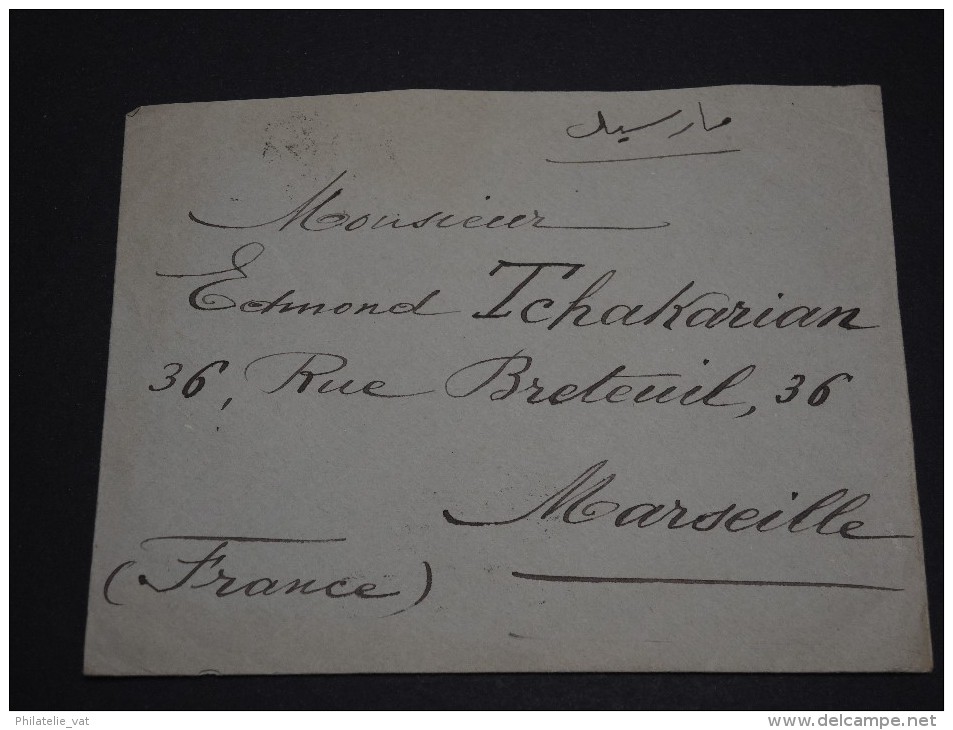 مارسيل
Monsieur
Edmond Tchakarian
36, Rue Breteuil, 36
Marseille
(France)
Philatelie_vat
www.delcampe.net